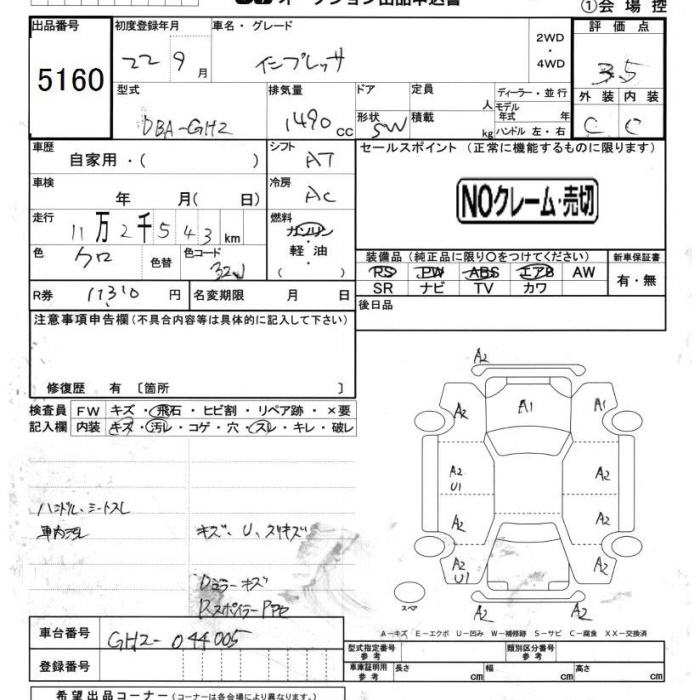 オークション出品申込書
①会場控
出品番号 初度登録年月 車名・グレード 2WD・4WD 評価点
5160 22 9月 インプレッサ 3.5
型式 排気量 ドア 定員 人 ディーラー・並行 外装 内装
DBA-GH2 1490cc 形状 SW 積載 kg モデル年式 年 ハンドル 左・右 C C
車歴 シフト セールスポイント (正常に機能するものに限ります)
自家用・( ) AT
車検 冷房
年 月( 日) AC NOクレーム・売切
走行 燃料
11万2千543km ガソリン
軽・油
( )
色 クロ 色替 色コード 32J
装備品 (純正品に限り○をつけてください) 新車保証書
PS PW ABS エアB AW 有・無
SR ナビ TV カワ
R券 11310円 名変期限 月 日
後日品
注意事項申告欄(不具合内容等は具体的に記入して下さい)
修復歴 有 〔箇所 〕
検査員 FW キズ・飛石・ヒビ割・リペア跡・×要
記入欄 内装 キズ・汚レ・コゲ・穴・スレ・キレ・破レ
ハンドル、シートスレ
車内汚レ
キズ、U、スリキズ
Dミラーキズ
A2
A2 A1 A1
A2 U1 A2
A2 A2
A2 U1 A2
A2 A2
スペア
A-キズ E-エクボ U-凹み W-補修跡 S-サビ C-腐食 XX-交換済
車台番号 GH2-044005
登録番号
型式指定番号 参考 類別区分番号 参考
車庫証明用 参考 長さ cm 幅 cm 高さ cm
希望出品コーナー(コーナーは各会場により異なります。)